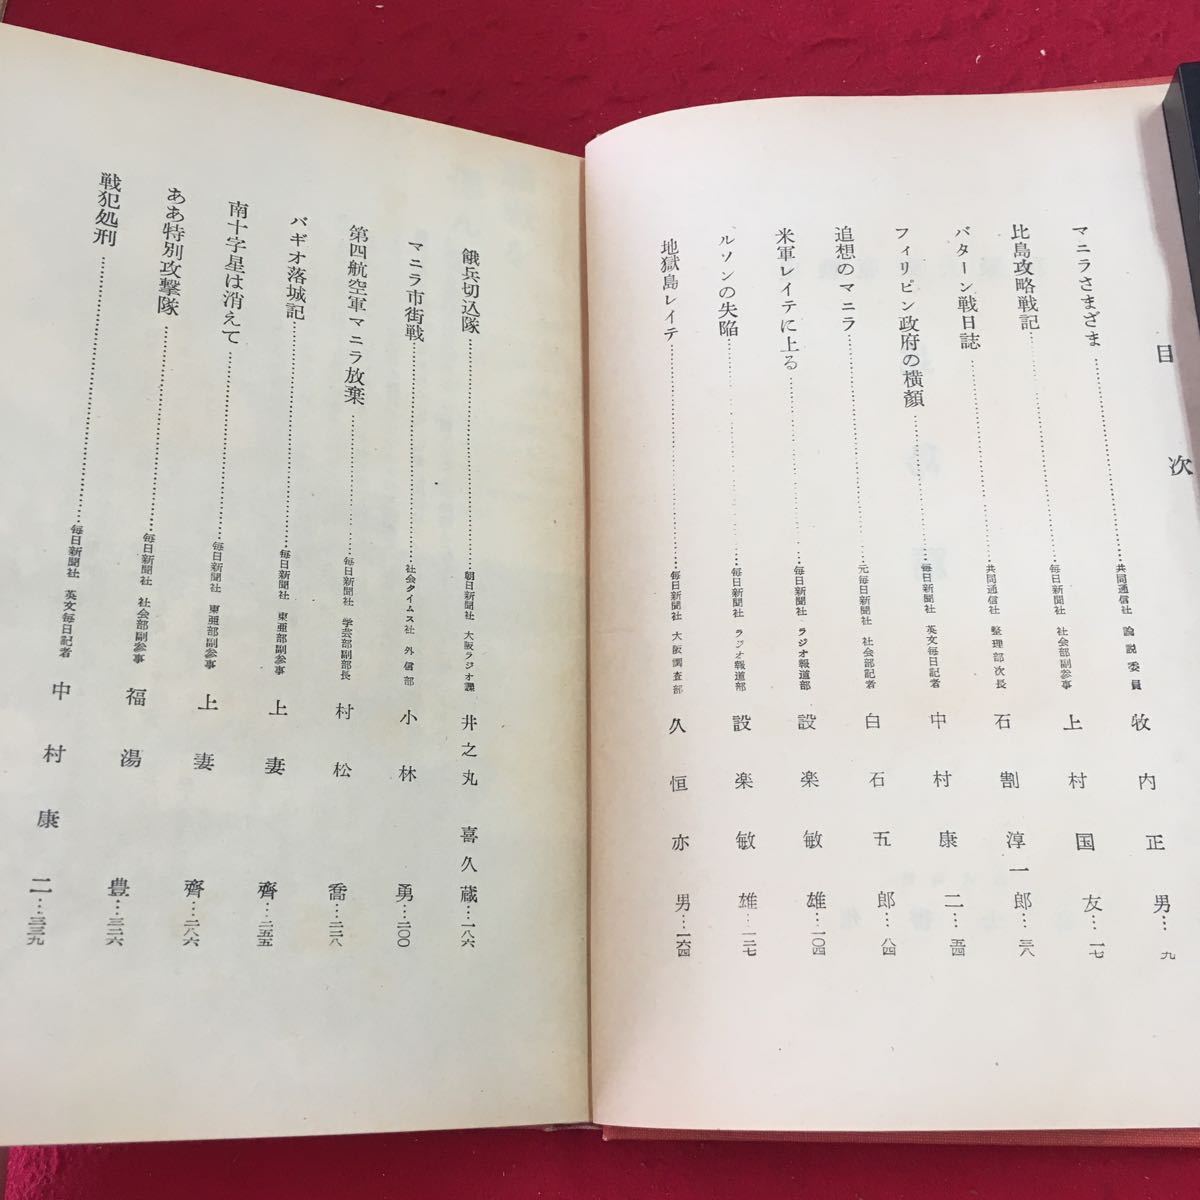 目次
マニラさまざま……………共同通信社 論説委員 牧内正男…九
比島攻略戦記……………毎日新聞社 社会部副参事 上村国友…一七
バターン戦日誌……………共同通信社 整理部次長 石割淳一郎…三八
フィリピン政府の横顔……………毎日新聞社 英文毎日記者 中村康二…五四
追想のマニラ……………元毎日新聞社 社会部記者 白石五郎…八四
米軍レイテに上る……………毎日新聞社 ラジオ報道部 設楽敏雄…一〇四
ルソンの失陥……………毎日新聞社 ラジオ報道部 設楽敏雄…一二七
地獄島レイテ……………毎日新聞社 大阪調査部 久恒亦男…一六四
餓兵切込隊……………朝日新聞社 大阪ラジオ課 井之丸喜久蔵…一八六
マニラ市街戦……………社会タイムス社 外信部 小林勇…二〇〇
第四航空軍マニラ放棄……………毎日新聞社 学芸部副部長 村松喬…二二八
バギオ落城記……………毎日新聞社 東亜部副参事 上妻齊…二五五
南十字星は消えて……………毎日新聞社 東亜部副参事 上妻齊…二八六
ああ特別攻撃隊……………毎日新聞社 社会部副参事 福湯豊…三二六
戦犯処刑……………毎日新聞社 英文毎日記者 中村康二…三三九